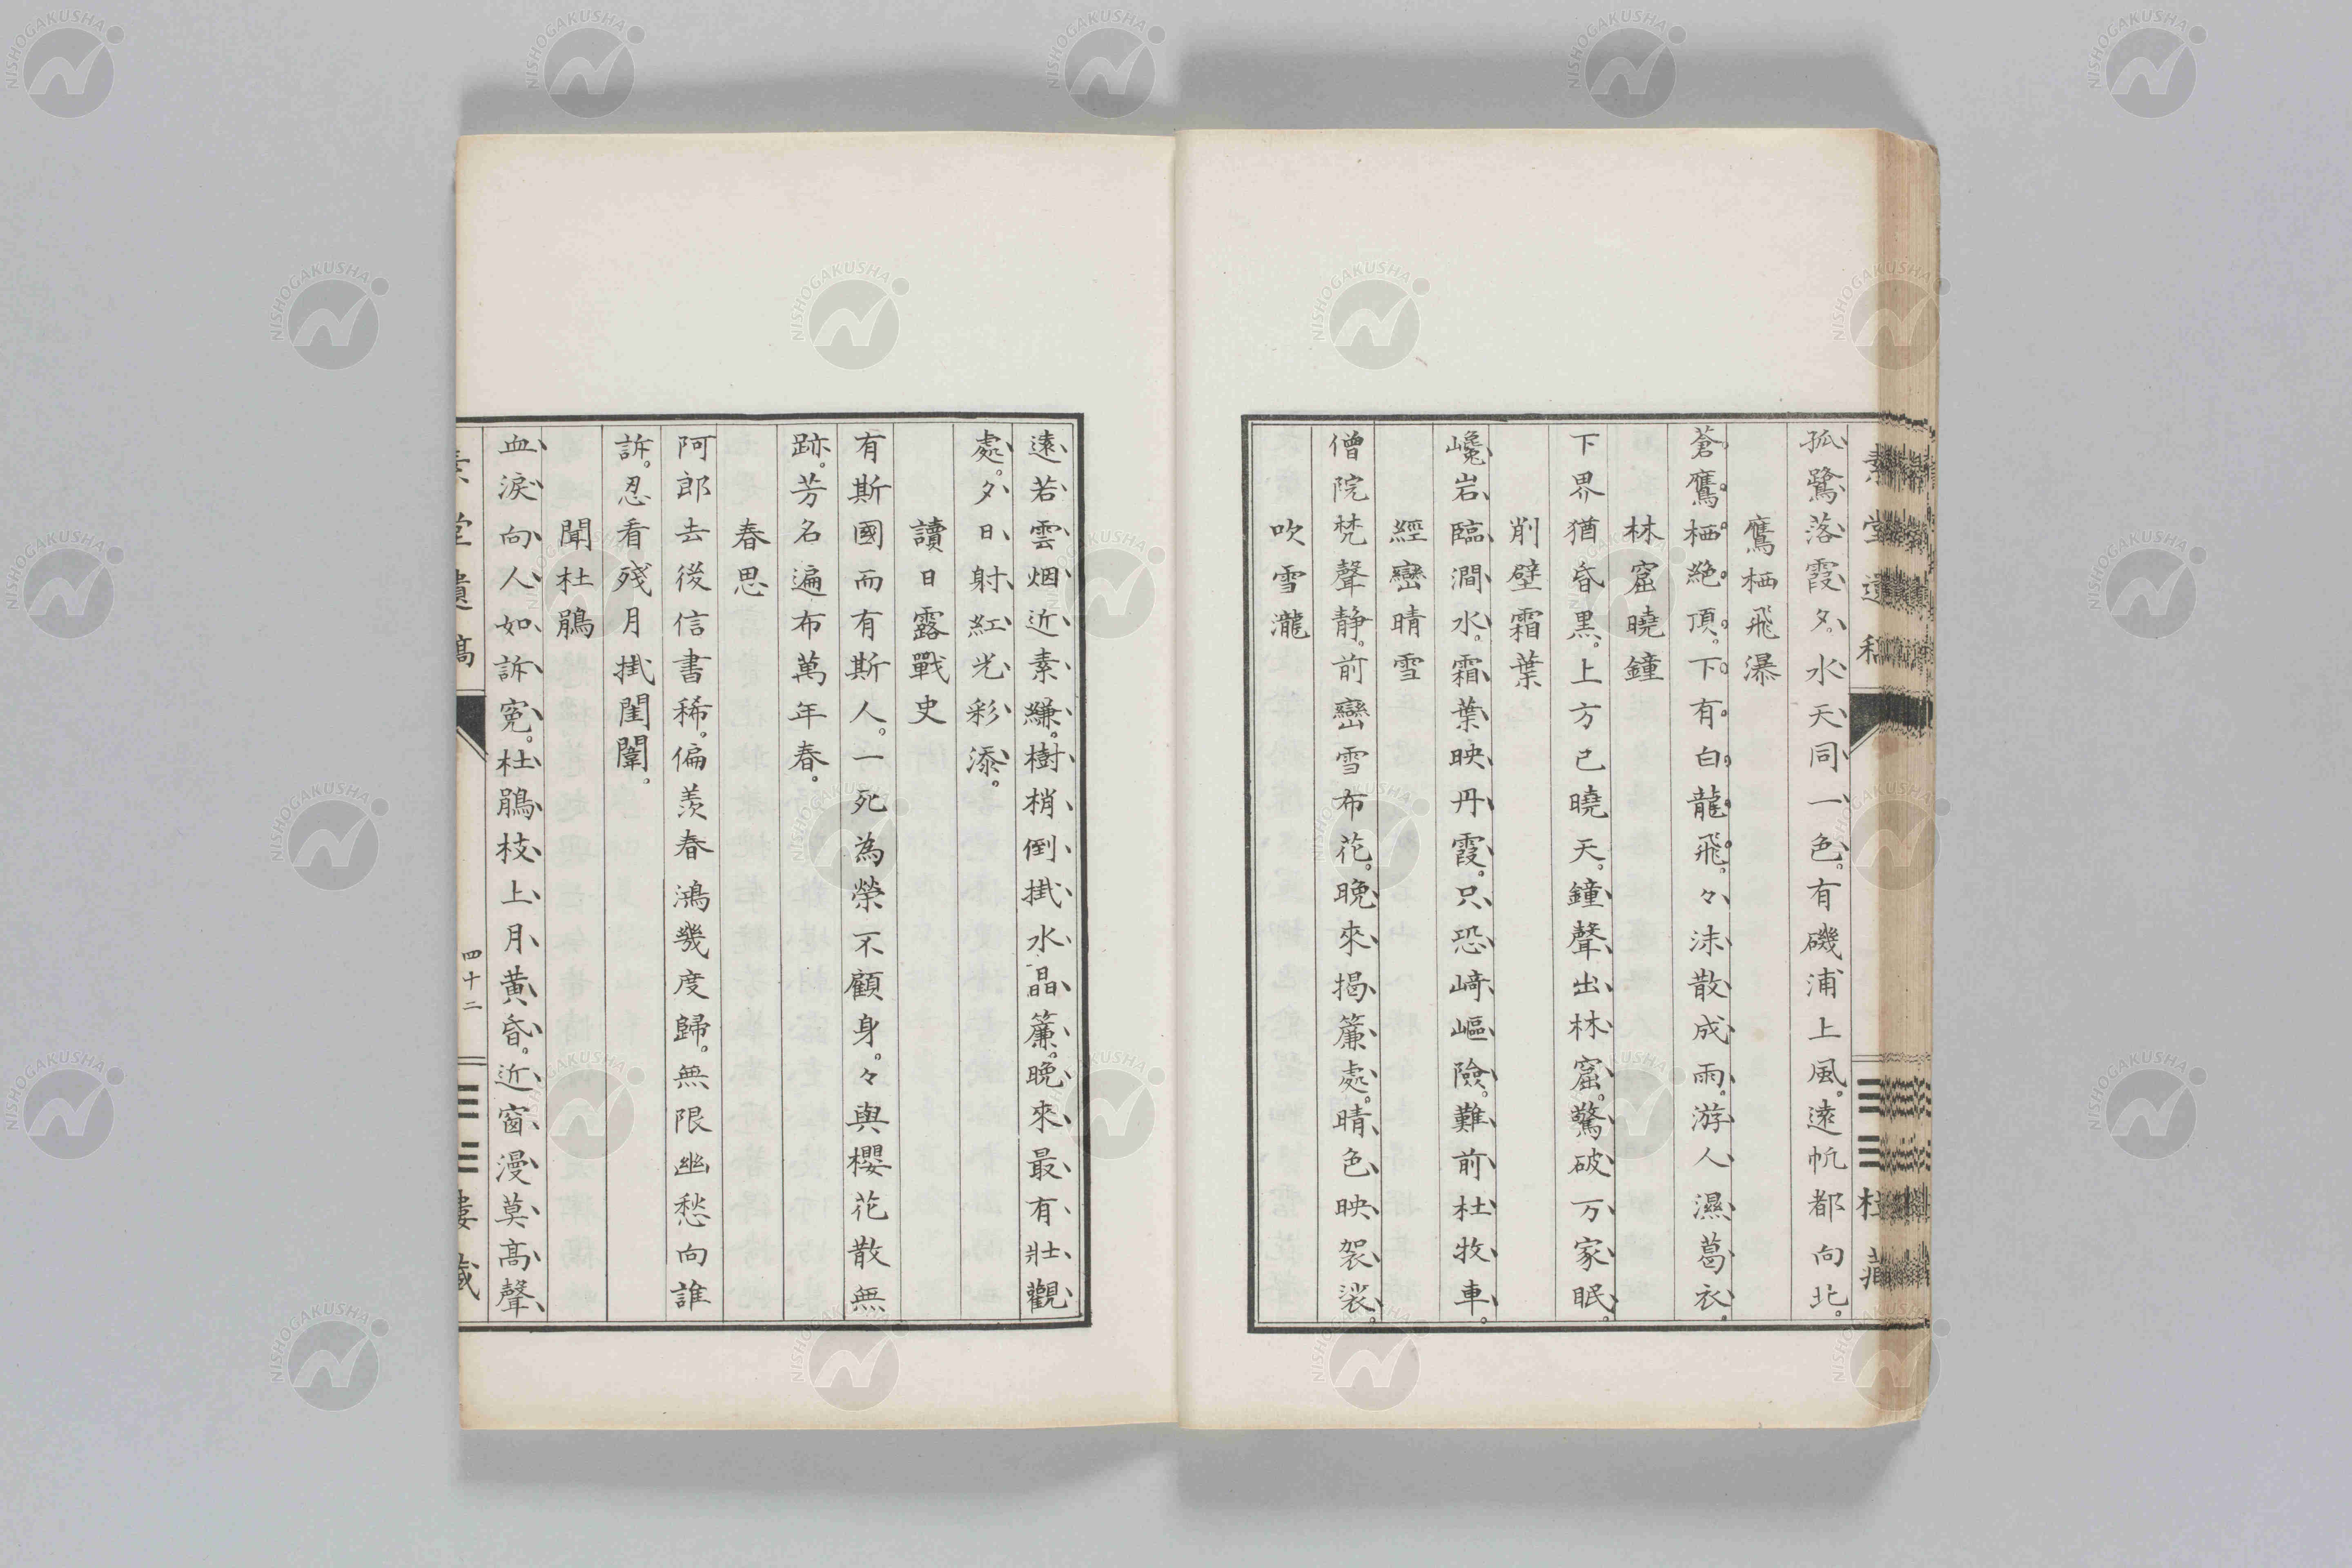 孤鷺落霞夕。水天同一色。有磯浦上風。遠帆都向北。
鷹栖飛瀑
蒼鷹栖絶頂。下有白龍飛。々沫散成雨。游人濕葛衣。
林窟曉鐘
下界猶昏黒。上方已曉天。鐘聲出林窟。驚破万家眠。
削壁霜葉
巉岩臨澗水。霜葉映丹霞。只恐崎嶇險。難前杜牧車。
經巒晴雪
僧院梵聲静。前巒雪布花。晩來掲簾處。晴色映袈裟。
吹雪瀧
遠若雲烟近素縑。樹梢倒掛水晶簾。晩來最有壯觀
處。夕日射紅光彩添。
讀日露戰史
有斯國而有斯人。一死為榮不顧身。々與櫻花散無
跡。芳名遍布萬年春。
春思
阿郎去後信書稀。偏羨春鴻幾度歸。無限幽愁向誰
訴。忍看殘月掛閨闈。
聞杜鵑
血淚向人如訴寃。杜鵑枝上月黄昏。近窗漫莫高聲
四十二
NISHOGAKUSHA